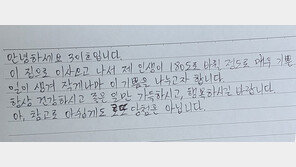 안녕하세요 301호입니다.
이 집으로 이사오고 나서 제 인생이 180도로 바뀐 정도로 매우 기쁜
일이 생겨 작게나마 이 기쁨을 나누고자 합니다.
항상 건강하시고 좋은 일만 가득하시고, 행복하시길 바랍니다.
아, 참고로 아쉽게도 로또 당첨은 아닙니다.